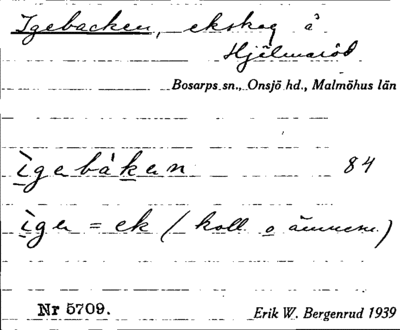 Igebacken, ekskog å
Hjälmaröd
Bosarps sn., Onsjö hd., Malmöhus län
ìgabàkan 84
ìga = ek (koll. o ämnesn.)
Nr 5709.
Erik W. Bergenrud 1939